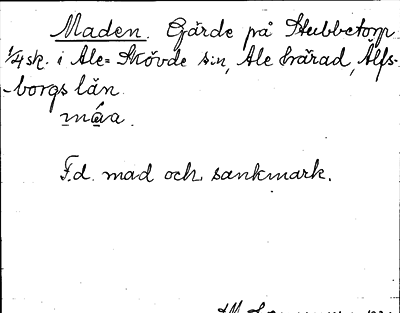 Maden. Gärde på Stubbetorp
1/4 sk. i Ale-Skövde s:n, Ale härad, Älfs-
-borgs län.
máa.
F.d. mad och sankmark.